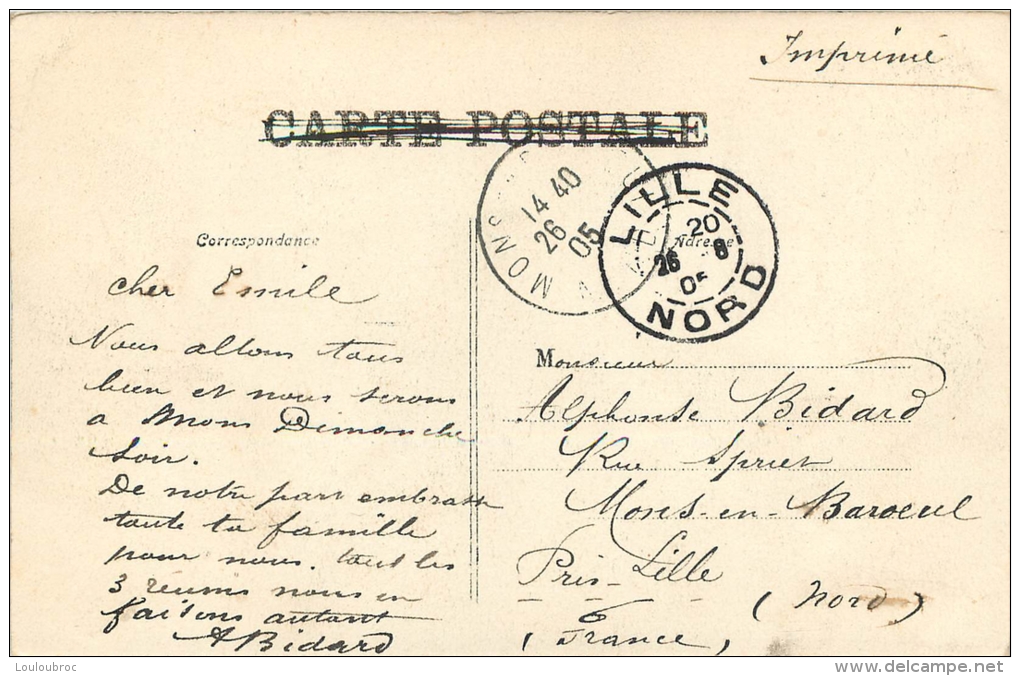 Imprimé
CARTE POSTALE
MONS
14 40
26
05
LILLE
20
26 8
05
NORD
Correspondance
Adresse
cher Emile
Nous allons tous
bien et nous serons
a Mons Dimanche
soir.
De notre part embrasse
toute ta famille
pour nous. tout les
3 réunis nous en
faisons autant
ABidard
Monsieur
Alphonse Bidard
Rue Spriet
Mons-en-Baroeul
Près-Lille
(Nord)
(France)
Louloubroc
delcampe.net